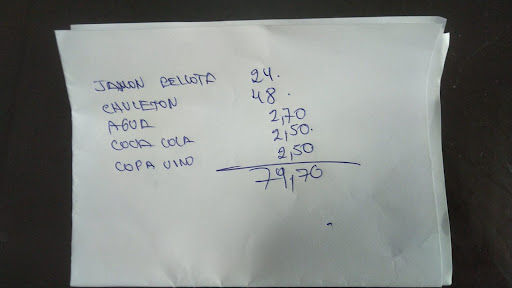 JAMON BELLOTA 24.
CHULETON 48.
AGUA 2,70
COCA COLA 2,50.
COPA VINO 2,50
79,70